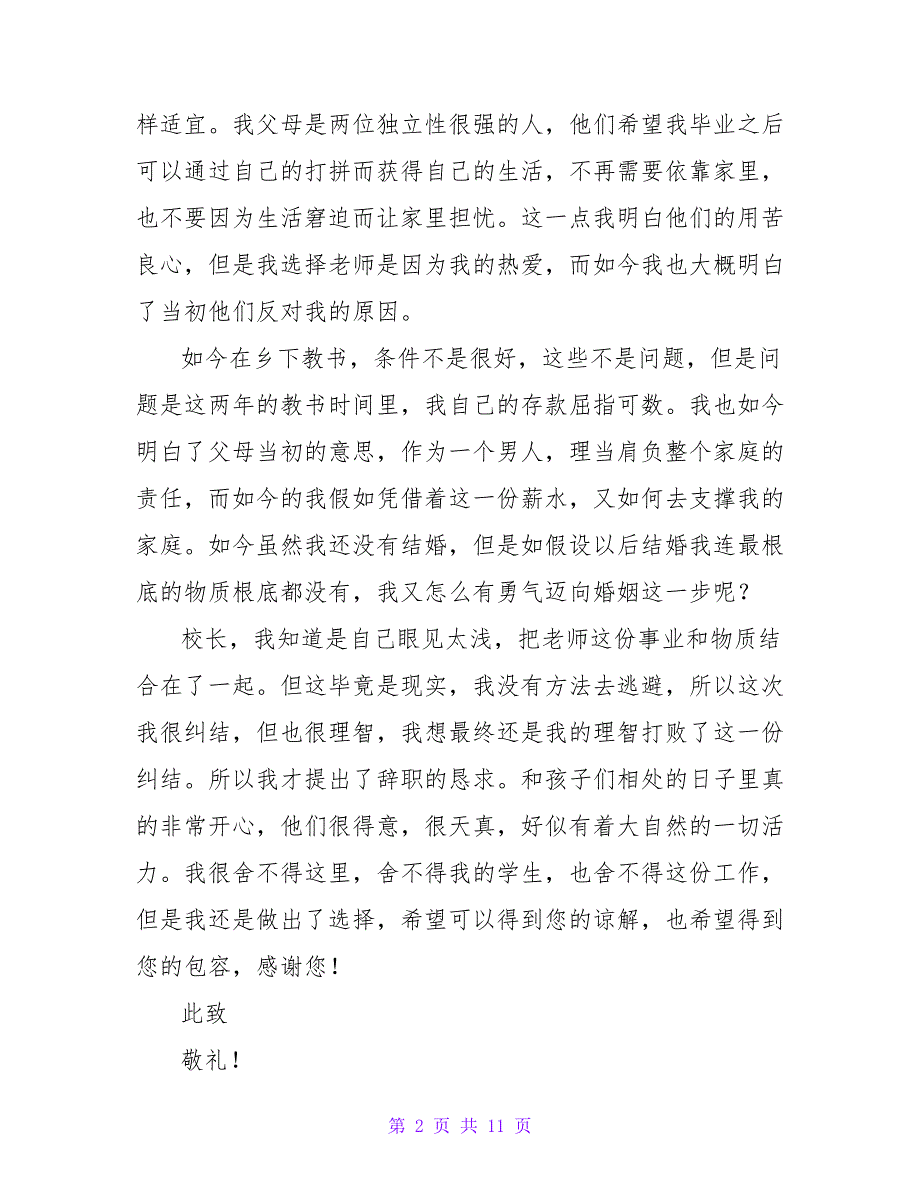 样适宜。我父母是两位独立性很强的人，他们希望我毕业之后
可以通过自己的打拼而获得自己的生活，不再需要依靠家里，
也不要因为生活窘迫而让家里担忧。这一点我明白他们的用苦
良心，但是我选择老师是因为我的热爱，而如今我也大概明白
了当初他们反对我的原因。
如今在乡下教书，条件不是很好，这些不是问题，但是问
题是这两年的教书时间里，我自己的存款屈指可数。我也如今
明白了父母当初的意思，作为一个男人，理当肩负整个家庭的
责任，而如今的我假如凭借着这一份薪水，又如何去支撑我的
家庭。如今虽然我还没有结婚，但是如假设以后结婚我连最根
底的物质根底都没有，我又怎么有勇气迈向婚姻这一步呢？
校长，我知道是自己眼见太浅，把老师这份事业和物质结
合在了一起。但这毕竟是现实，我没有方法去逃避，所以这次
我很纠结，但也很理智，我想最终还是我的理智打败了这一份
纠结。所以我才提出了辞职的恳求。和孩子们相处的日子里真
的非常开心，他们很得意，很天真，好似有着大自然的一切活
力。我很舍不得这里，舍不得我的学生，也舍不得这份工作，
但是我还是做出了选择，希望可以得到您的谅解，也希望得到
您的包容，感谢您！
此致
敬礼！
第 2 页 共 11 页